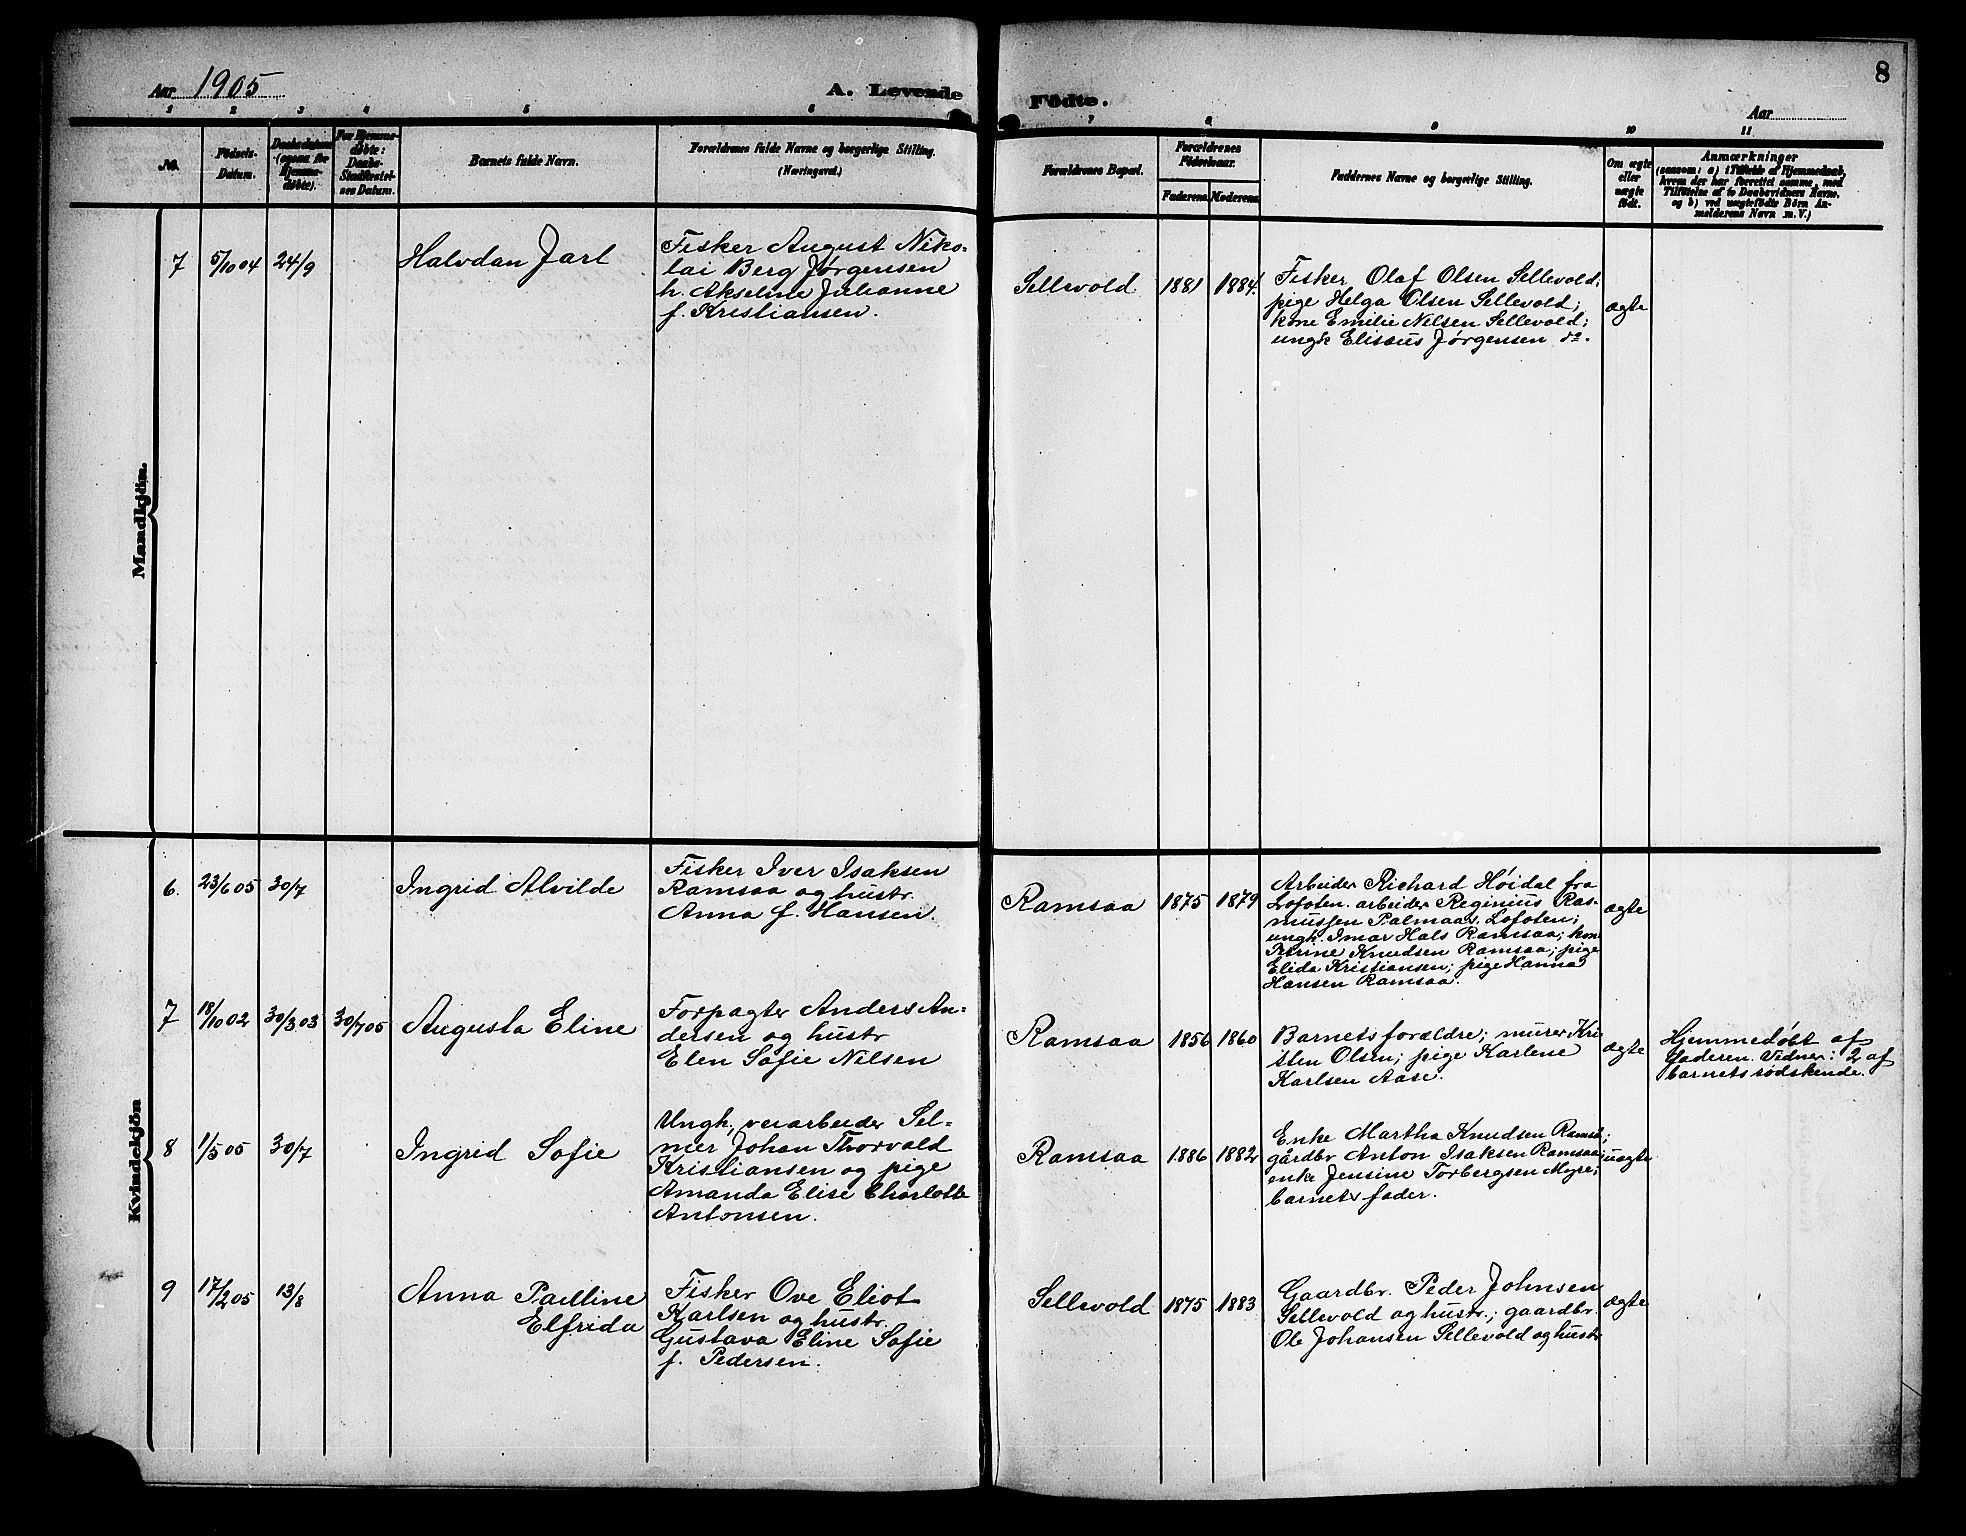 Aar 1905
A. Levende
Födte.
Aar
8
1 2 3 4 5 6 7 8 9 10 11
No.
Födsels-
Datum.
Daabsdatum
(ogsaa for
Hjemme-
döbte).
For Hjemme-
döbte:
Daabs-
Stadfæstel-
ses Datum.
Barnets fulde Navn.
Forældrenes fulde Navne og borgerlige Stilling.
(Næringsvei.)
Forældrenes Bopæl.
Forældrenes
Födselsaar.
Faderens Moderens
Faddernes Navne og borgerlige Stilling.
Om ægte
eller
uægte
födt.
Anmærkninger
(saasom: a) i Tilfælde af Hjemmedaab,
hvem der har forrettet samme, med
Tilföielse af to Daabsvidners Navne,
og b) ved uægtefödte Börn An-
melderens Navn m. V.)
Mandkjön.
7 5/10 04 24/9
Halvdan Jarl
Fisker August Niko-
lai Berg Jørgensen
h. Akseline Julianne
f. Kristiansen.
Sellevold. 1881 1884.
Fisker Olaf Olsen Sellevold;
pige Helga Olsen Sellevold;
kone Emilie Nilsen Sellevold;
ungk Elisæus Jørgensen do.
ægte
Kvindekjön
6. 23/6 05 30/7
Ingrid Alvilde
Fisker Iver Isaksen
Ramsaa og hustr.
Anna f. Hansen.
Ramsaa 1875 1879
Arbeider Richard Høidal fra
Lofoten. arbeider Reginius Ras-
mussen Palmaar, Lofoten;
ungk. Imar Hals Ramsaa; kon
Petrine Knudsen Ramsaa; pige
Elida Kristiansen; pige Hanna
Hansen Ramsaa.
ægte
7 18/10 02 30/3 03 30/7 05
Augusta Eline
Forpagter Anders An-
dersen og hustr
Elen Sofie Nilsen
Ramsaa 1856 1860
Barnets forældre; murer Kri-
sten Olsen; pige Karlene
Karlsen Aase.
ægte
Hjemmedøbt af
faderen. Vidner: 2 af
barnets sødskende.
8 1/5 05 30/7
Ingrid Sofie
Ungk, veiarbeider Sel-
mer Johan Thorvald
Kristiansen og pige
Amanda Elise Charlotte
Antonsen.
Ramsaa 1886 1882
Enke Martha Knudsen Ramsa;
gårdbr Anton Isaksen Ramsaa;
enke Jensine Torbergsen Myre;
barnets fader.
uægte
9 17/2 05 13/8
Anna Pauline
Elfrida
Fisker Ove Eliot
Karlsen og hustr.
Gustava Eline Sofie
f. Pedersen.
Sellevold 1875 1883
Gaardbr. Peder Johnsen
Sellevold og hustr.; gaardbr.
Ole Johansen Sellevold og hustr
ægte